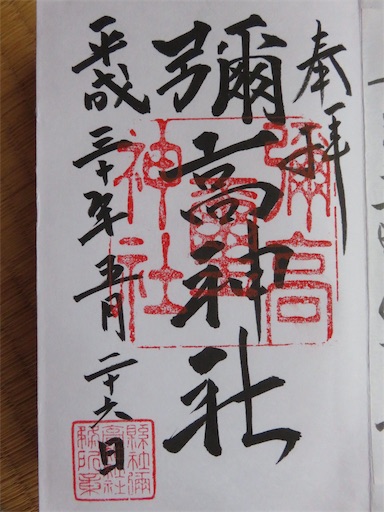 奉拝
彌高神社
平成三十年五月二十六日
彌高
神社